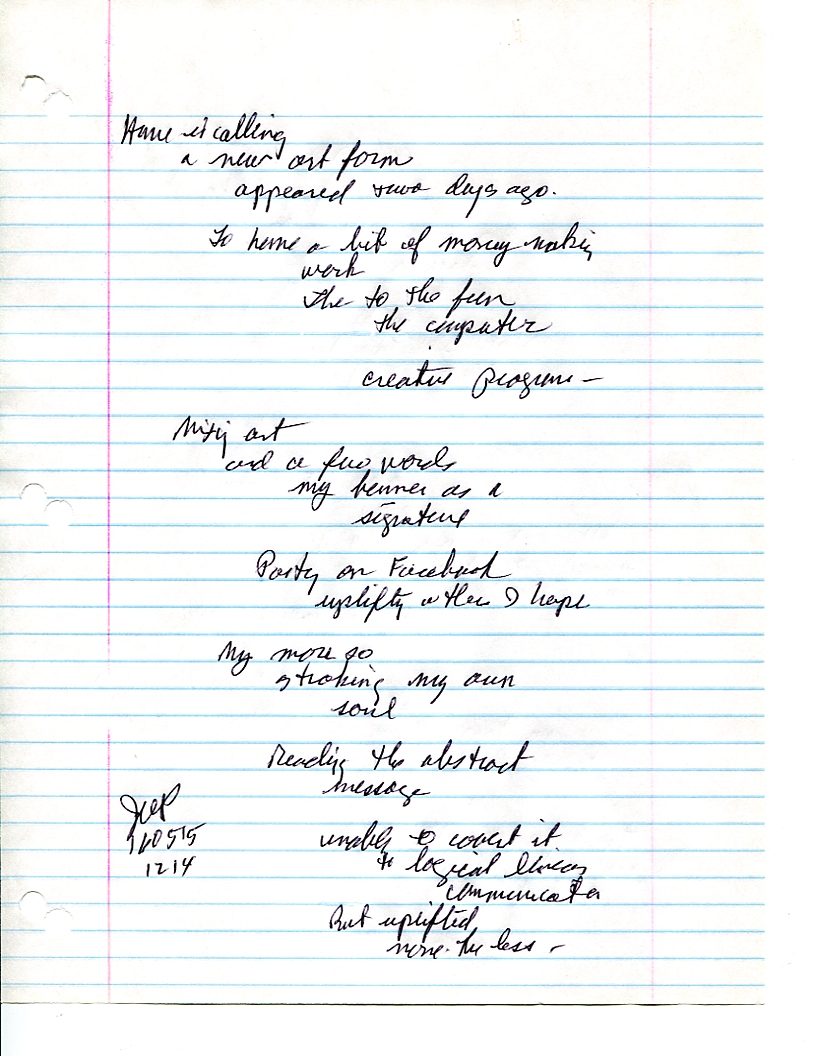 is calling
a new art form
appeared two days ago.
To have a bit of money making
work
the to the fun
the computer
creative program –
Mixing art
and a few words
my banner as a
signature
Posting on Facebook
uplifting others I hope
My more so
stroking my own
soul
Reading the abstract
message
unable to covert it
to logical linear
communication
But uplifted
none the less –
JWP
160515
1214